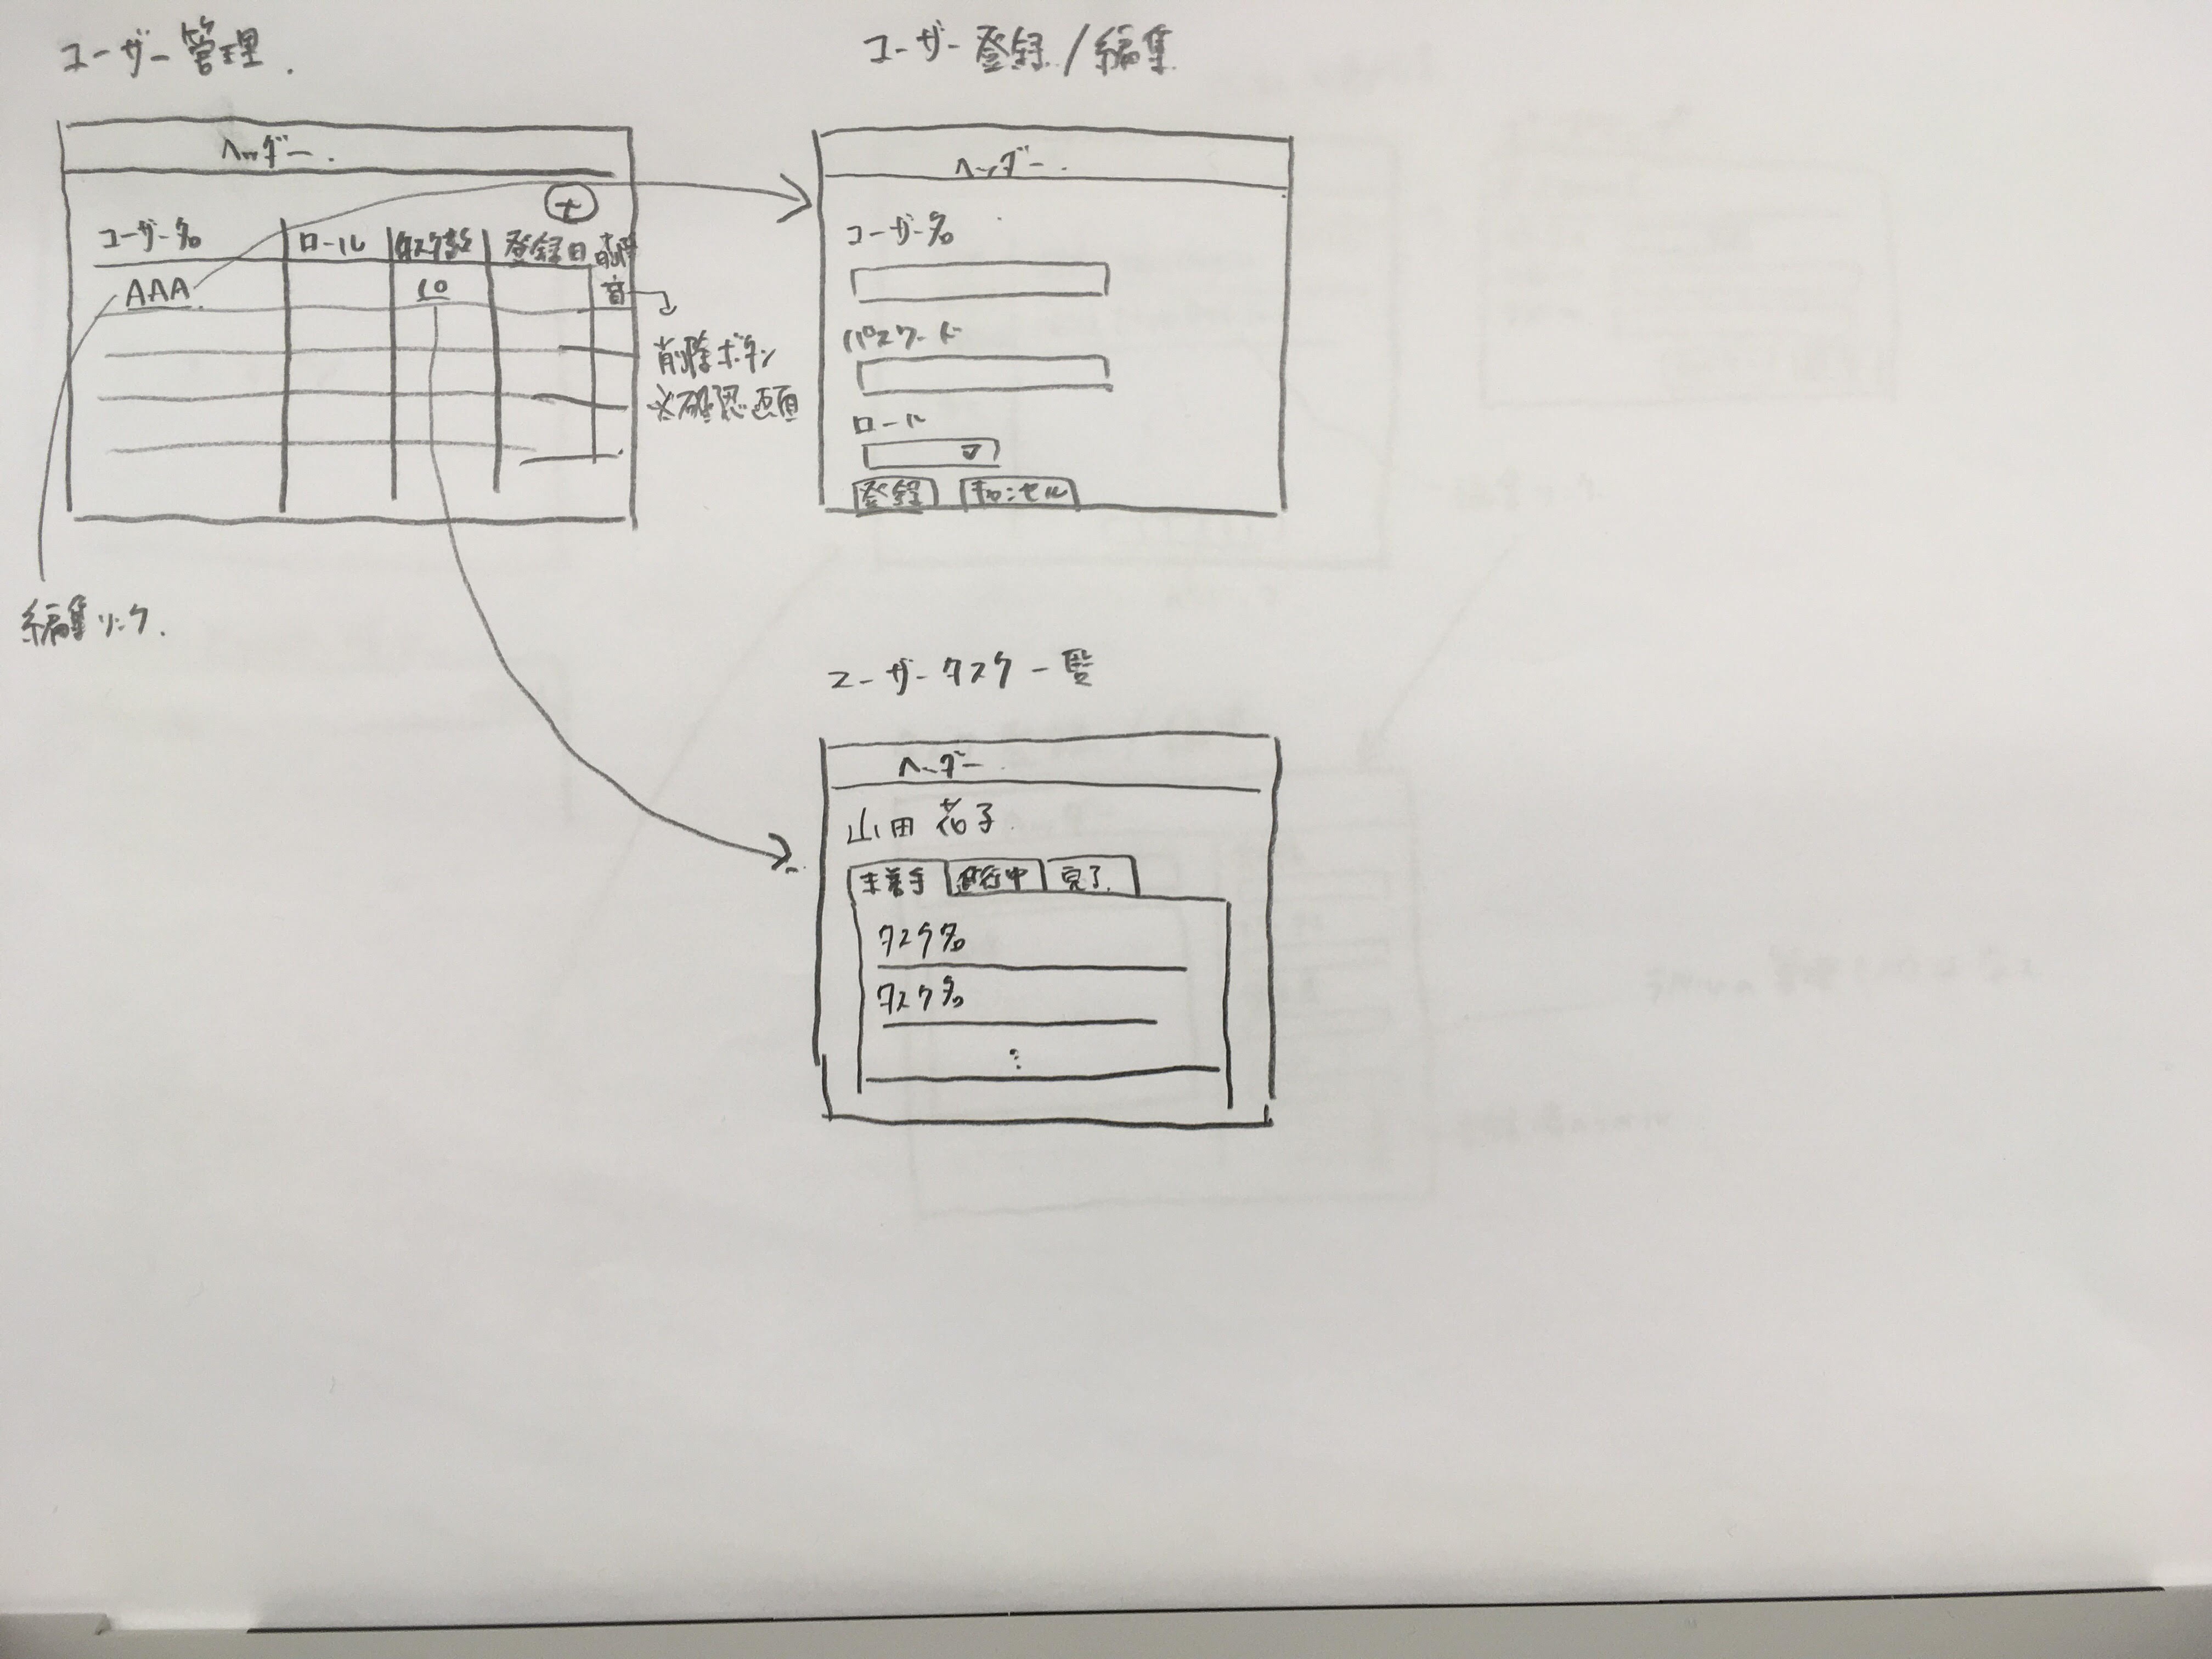 ユーザー管理.
ヘッダー.
+
ユーザー名 ロール タスク数 登録日 削除
AAA 10
削除ボタン
※確認画面
編集リンク.
ユーザー登録/編集
ヘッダー.
ユーザー名
パスワード
ロール
登録 キャンセル
ユーザータスク一覧
ヘッダー.
山田 花子
未着手 進行中 完了
タスク名
タスク名
⋮